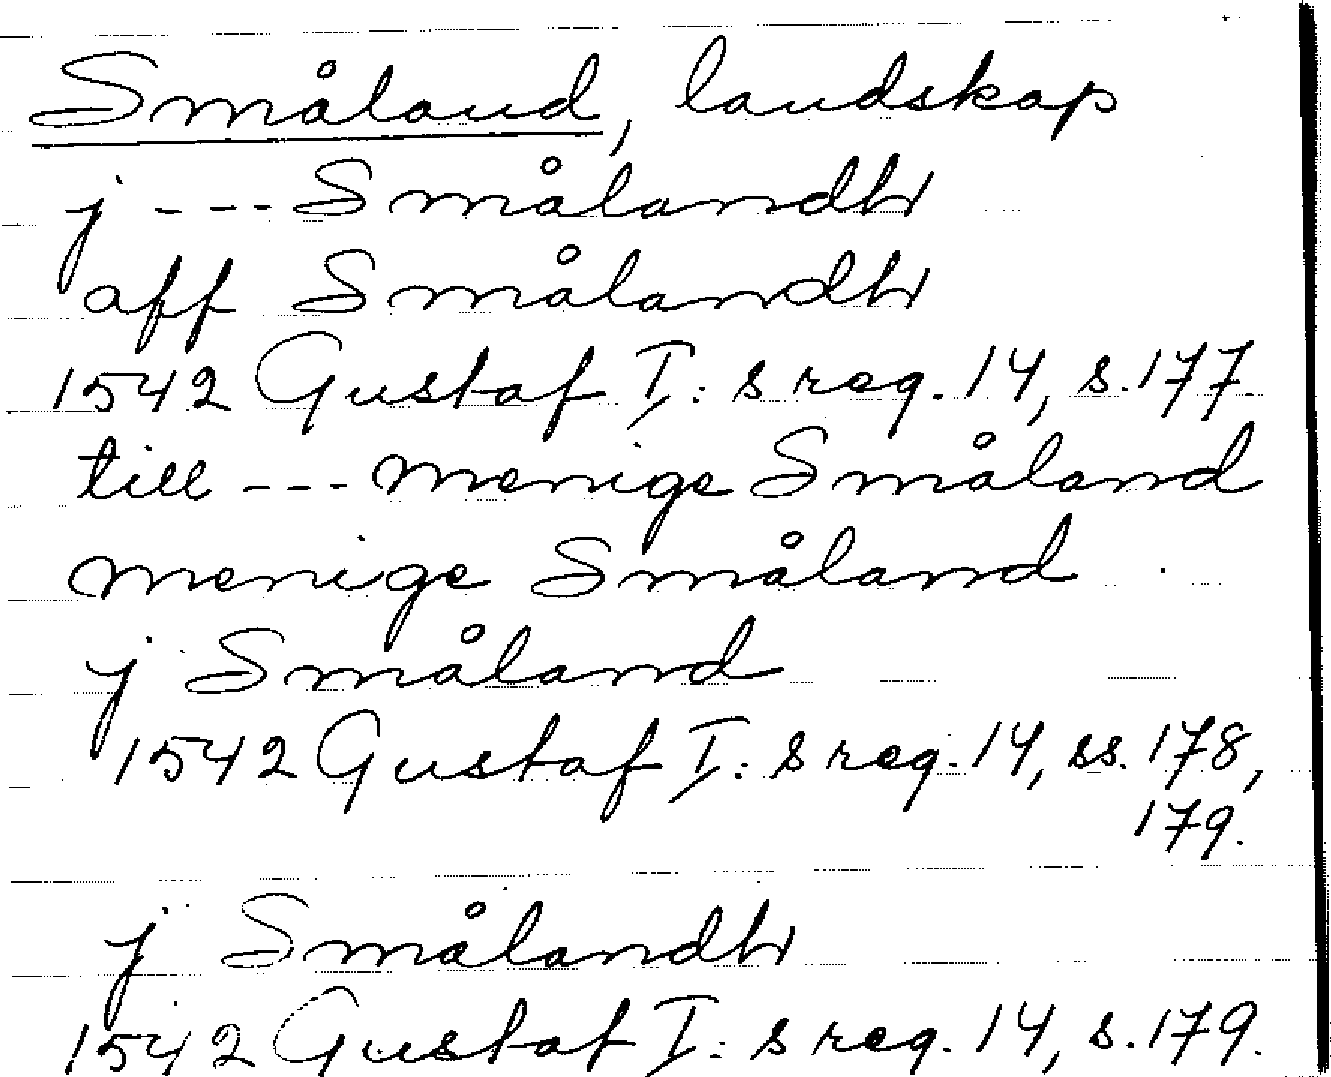 Småland, landskap
j --- Smålandh
aff Smålandh
1542 Gustaf I:s reg. 14, s. 177.
till --- menige Småland
menige Småland
j Småland
1542 Gustaf I:s reg. 14, ss. 178,
179.
j Smålandh
1542 Gustaf I:s reg. 14, s. 179.